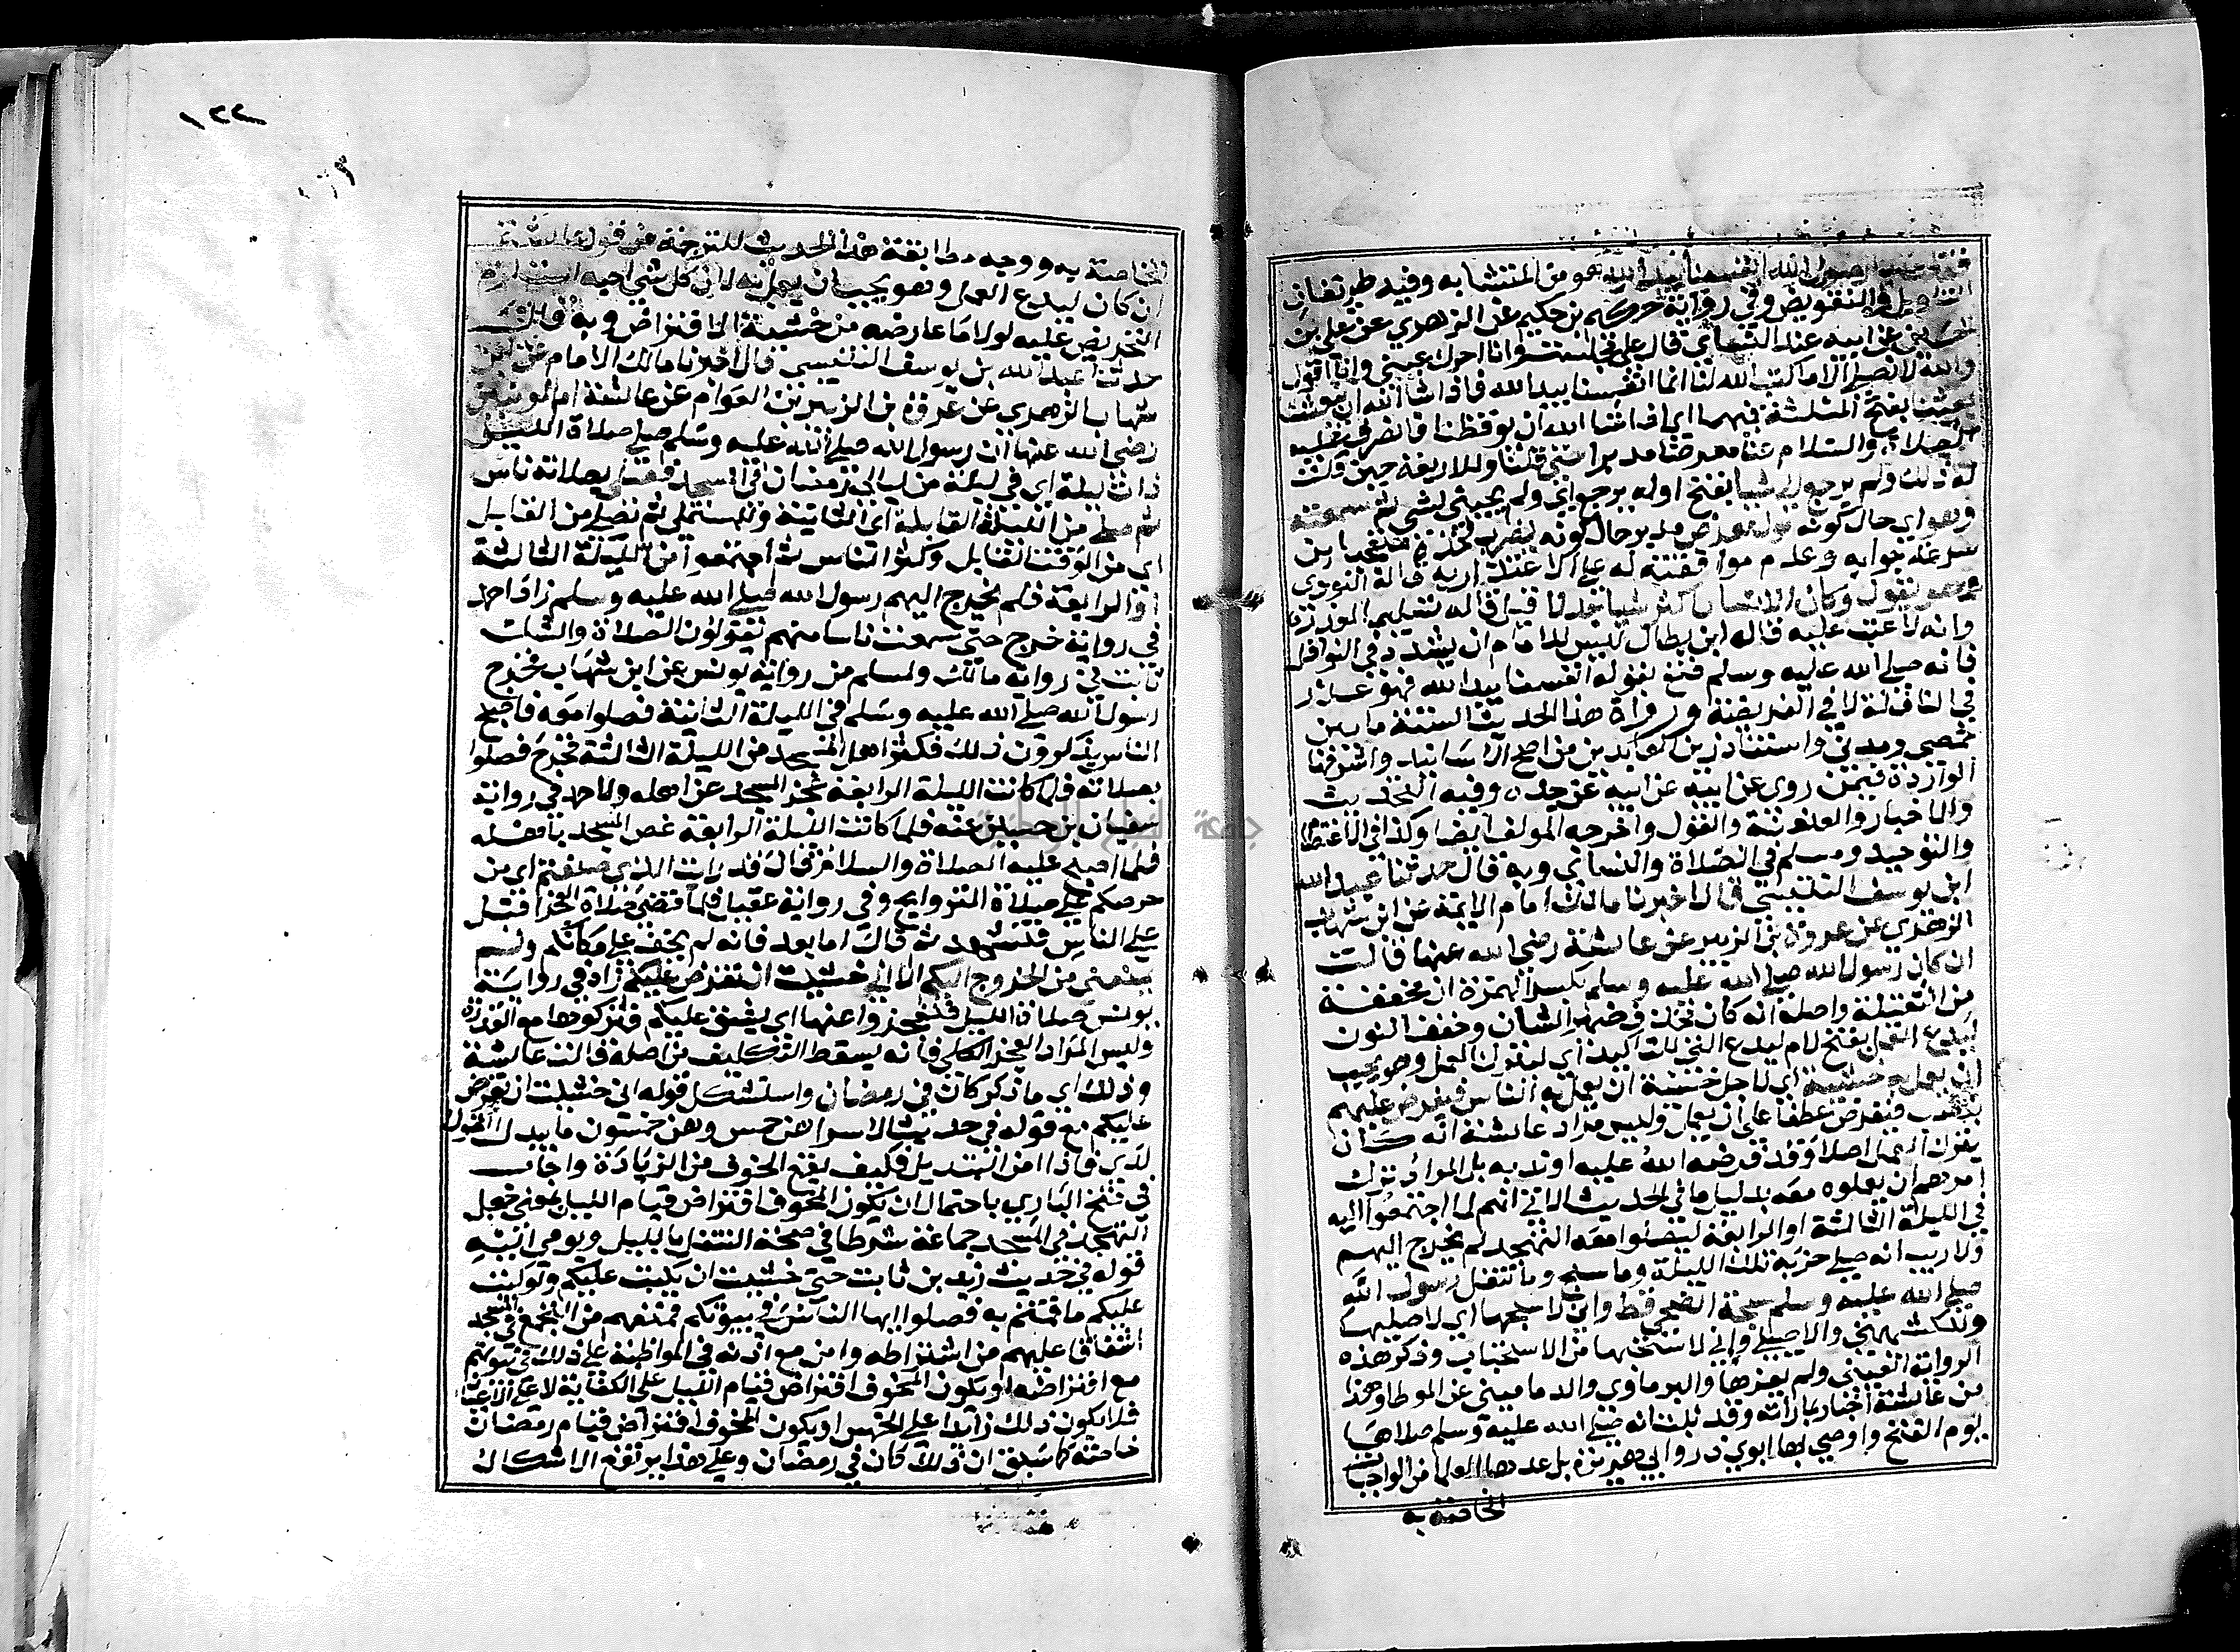 فقلت يا رسول الله انفسنا بيد الله هو من المتشابه وفيه طريقتان
التاويل والتفويض وفي رواية حكيم بن حكيم عن الزهري عن علي بن
الحسين عن ابيه عند النسائي قال علي فجلست وانا احرك عيني وانا اقول
والله لا نصلي الا ما كتب الله لنا انما انفسنا بيد الله فاذا شا الله ان يبعثنا
بعثنا بفتح المثلثة فيهما اي اذا شا الله ان يوقظنا فانصرف عليه
الصلاة والسلام عنا معرضا مدبرا حين قلنا وللاربعة حين قلت
له ذلك ولم يرجع الي شيا بفتح اوله يرجع اي ولم يجبني بشي ثم سمعته
وهو اي حال كونه مول معرض مدبر حال كونه يضرب فخذه متعجبا من
سرعة جوابه وعدم موافقته له علي الاعتذار به قاله النووي
وهو يقول وكان الانسان اكثر شيا جدلا قيل قاله تسليما لعذره
وانه لا عتب عليه قال ابن بطال ليس للامام ان يشدد في النوافل
فانه صلي الله عليه وسلم قنع بقوله انفسنا بيد الله فهو عذر
في النافلة لا في الفريضة ورواة هذا الحديث الستة ما بين
حمصي ومدني واسناد زين العابدين من اصح الاسانيد واشرفها
الواردة فيمن روي عن ابيه عن ابيه عن جده وفيه التحديث
والاخبار والعنعنة والقول واخرجه المولف ايضا وكذا في الاعتصام
والتوحيد ومسلم في الصلاة والنسائي وبه قال حدثنا عبد الله
ابن يوسف التنيسي قال اخبرنا مالك امام الايمة عن ابن شهاب
الزهري عن عروة بن الزبير عن عايشة رضي الله عنها قالت
ان كان رسول الله صلي الله عليه وسلم بكسر الهمزة ان مخففة
من الثقيلة واصله انه كان فحذف ضمير الشان وخفف النون
ليدع العمل بفتح لام ليدع التي للتاكيد اي ليترك العمل وهو يحب
ان يعمل به خشية اي لاجل خشية ان يعمل به الناس فيفرض عليهم
بنصب فيفرض عطفا علي ان يعمل وليس مراد عايشة انه كان
يترك العمل اصلا وقد فرضه الله عليه او ندبه بل المراد ترك
امرهم ان يعملوه معه بدليل ما في الحديث الاتي انهم لما اجتمعوا اليه
في الليلة الثالثة او الرابعة ليصلوا معه التهجد لم يخرج اليهم
ولا ريب انه صلي حزبه تلك الليلة وما سبح وما تنفل رسول الله
صلي الله عليه وسلم سبحة الضحي قط واني لاسبحها اي لاصليها
وللكشميهني والاصيلي واني لاستحبها من الاستحباب وذكر هذه
الرواية العيني ولم يعزها والبرماوي والدماميني عن الموطا وهذا
من عايشة اخبار بما راته وقد ثبت انه صلي الله عليه وسلم صلاها
يوم الفتح واوصي بها ابوي ذر والي هريرة بل عدها العلما من الواجبات
الخاصة به
١٢٢
الخاصة به ووجه مطابقة هذا الحديث للترجمة من قول عايشة
ان كان ليدع العمل وهو يحب ان يعمل به لان كل شي احبه استلزم
التحريض عليه لولا ما عارضه من خشية الافتراض وبه قال
حدثنا عبد الله بن يوسف التنيسي قال اخبرنا مالك الامام عن ابن
شهاب الزهري عن عروة بن الزبير بن العوام عن عايشة ام المومنين
رضي الله عنها ان رسول الله صلي الله عليه وسلم صلي صلاة الليل
ذات ليلة اي في ليلة من ليالي رمضان في المسجد فصلي بصلاته ناس
ثم صلي من الليلة القابلة اي الثانية وللمستملي ثم نصلي من القابل
اي من الوقت القابل وكثر الناس ثم اجتمعوا من الليلة الثالثة
او الرابعة فلم يخرج اليهم رسول الله صلي الله عليه وسلم زاد احمد
في رواية خرج حتي سمعت ناسا منهم يقولون الصلاة والشك
ثابت في رواية مالك ولمسلم من رواية يونس عن ابن شهاب فخرج
رسول الله صلي الله عليه وسلم في الليلة الثانية فصلوا معه فاصبح
الناس يذكرون ذلك فكثر اهل المسجد من الليلة الثالثة فخرج فصلوا
بصلاته فلما كانت الليلة الرابعة عجز المسجد عن اهله ولاحمد في رواية
سفيان بن حسين عنه فلما كانت الليلة الرابعة غص المسجد باهله
فلما اصبح عليه الصلاة والسلام قال قد رايت الذي صنعتم اي من
حرصكم علي صلاة التراويح وفي رواية عقيل فلما قضي صلاة الفجر اقبل
علي الناس فتشهد ثم قال اما بعد فانه لم يخف علي مكانكم ولم
يمنعني من الخروج اليكم الا اني خشيت ان تفرض عليكم زاد في رواية
يونس صلاة الليل فتعجزوا عنها اي يشق عليكم فتتركوها مع القدرة
وليس المراد العجز الكلي فانه يسقط التكليف من اصله قالت عايشة
وذلك اي ما ذكر كان في رمضان واستشكل قوله اني خشيت ان تفرض
عليكم مع قوله في حديث الاسرا هن خمس وهن خمسون ما يبدل القول
لدي فاذا امن التبديل فكيف يقع الخوف من الزيادة واجاب
في فتح الباري باحتمال ان يكون المخوف افتراض قيام الليل بمعني جعل
التهجد في المسجد جماعة شرطا في صحة التنفل بالليل ويومي اليه
قوله في حديث زيد بن ثابت حتي خشيت ان يكتب عليكم ولو كتب
عليكم ما قمتم به فصلوا ايها الناس في بيوتكم فمنعهم من التجمع في المسجد
اشفاقا عليهم من اشتراطه وامن مع اذنه في المواظبة علي ذلك في بيوتهم
مع افتراضه او يكون المخوف افتراض قيام الليل علي الكفاية لا علي الاعيان
فلا يكون ذلك زايدا علي الخمس او يكون المخوف افتراض قيام رمضان
خاصة كما سبق ان ذلك كان في رمضان وعلي هذا يرتفع الاشكال